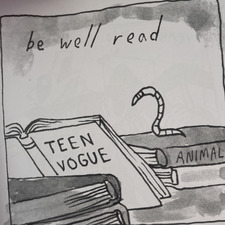 be well read
TEEN
VOGUE
ANIMAL